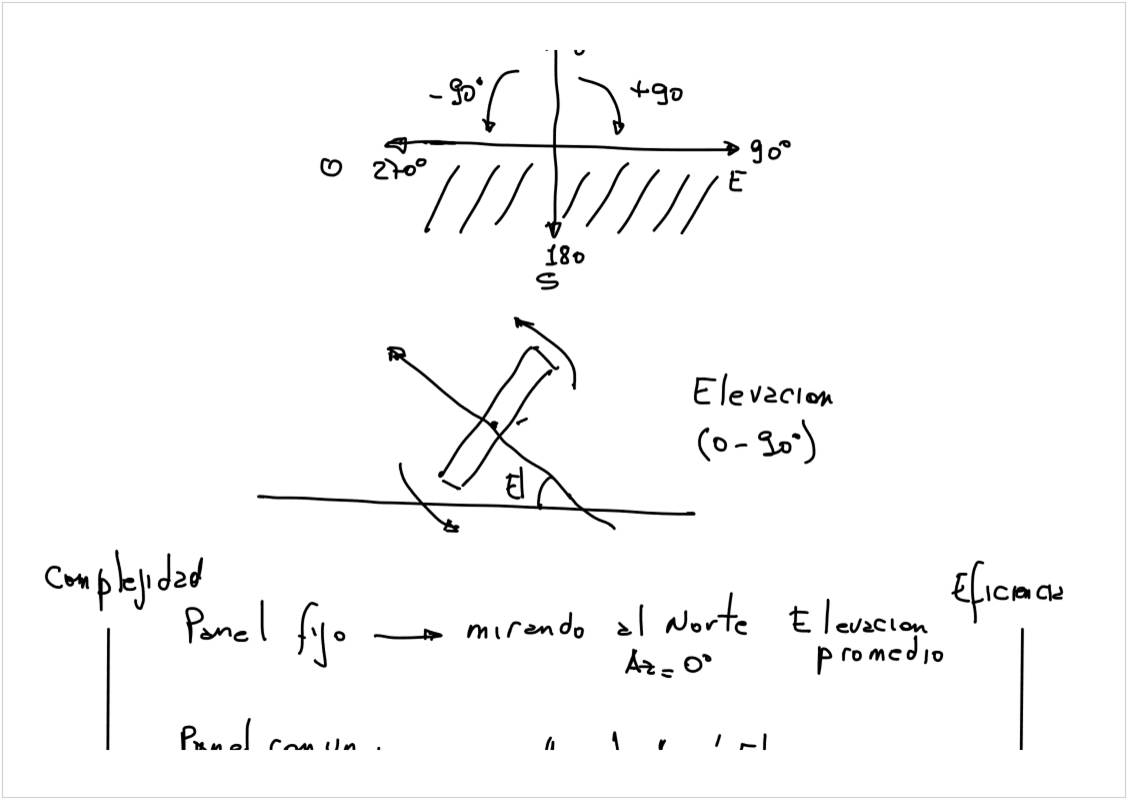 -90°
+90
90°
O 270°
E
180
S
Elevacion
(0-90°)
El
Complejidad
Eficiencia
Panel fijo → mirando al Norte Elevacion
Az=0° promedio
Panel con un